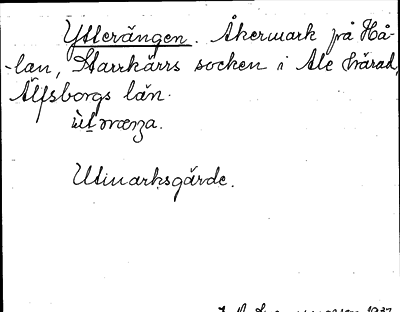 Ytterängen. Åkermark på Hå-
-lan, Starrkärrs socken i Ale härad,
Älfsborgs län.
Utmarksgärde.